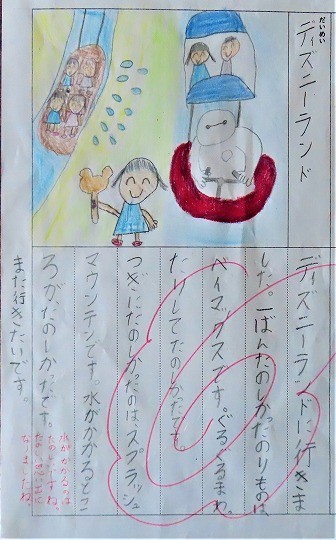 だいめい
ディズニーランド
ディズニーランドに行きま
した。一ばんたのしかったのりものは、
ベイマックスです。ぐるぐるまわっ
たりしてたのしかったです。
つぎにたのしかったのは、スプラッシュ
マウンテンです。水がかかるとこ
ろが、たのしかったです。
また行きたいです。
水がかかるのは
たのしいですね。
思い出に
なりましたね。